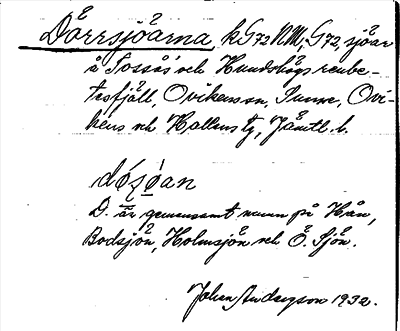 Dörrsjöarna, k G72 NM; G72, sjöar
å Sösjö och Hundshögs renbe-
tesfjäll, Ovikens sn, Sunne, Ovi-
kens och Hallens tg, Jämtl. l.
D. är gemensamt namn på Hån,
Bodsjön, Holmsjön och Ö. Sjön.
Johan Anderson 1932.